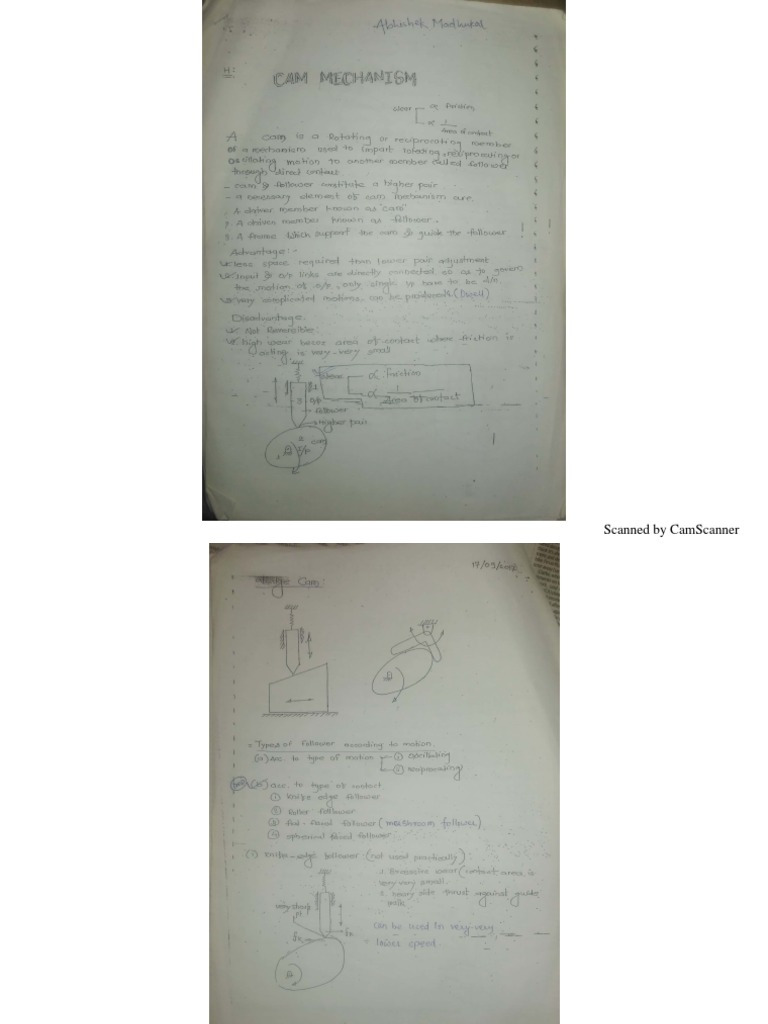 Abhishek
H:
CAM MECHANISM
wear ∝ friction
∝ 1
Area of contact
A cam is a Rotating or reciprocating member
of a mechanism used to impart rotating, reciprocating or
oscillating motion to another member called follower
through direct contact
- cam & follower constitute a higher pair.
- a necessary element of cam mechanism are.
1. A driver member known as 'cam'
2. A driven member known as follower.
3. A frame which support the cam & guide the follower
Advantage:-
less space required lower pair adjustment
Input & o/p links are directly connected so as to
the motion of o/p, only single have to be
very complicated motions can be (Dwell)
Disadvantage.
Not Reversible:
high wear area of contact where friction is
acting is very-very small
wear ∝ friction
∝ 1
Area of contact
3
follower
Higher pair
2
cam
Scanned by CamScanner
17/05/
Cam:
Types of follower according to motion.
(a) Acc. to type of motion ① Oscillating
② reciprocating
acc. to type of contact
① knife edge follower
② Roller follower
③ flat-faced follower (mushroom follower)
④ spherical faced follower
(1) Knife-edge follower (not used practically)
1. Excessive wear (contact area is
very very small.
2. heavy side thrust against guide
very sharp
pt
can be used in very-very
lower speed